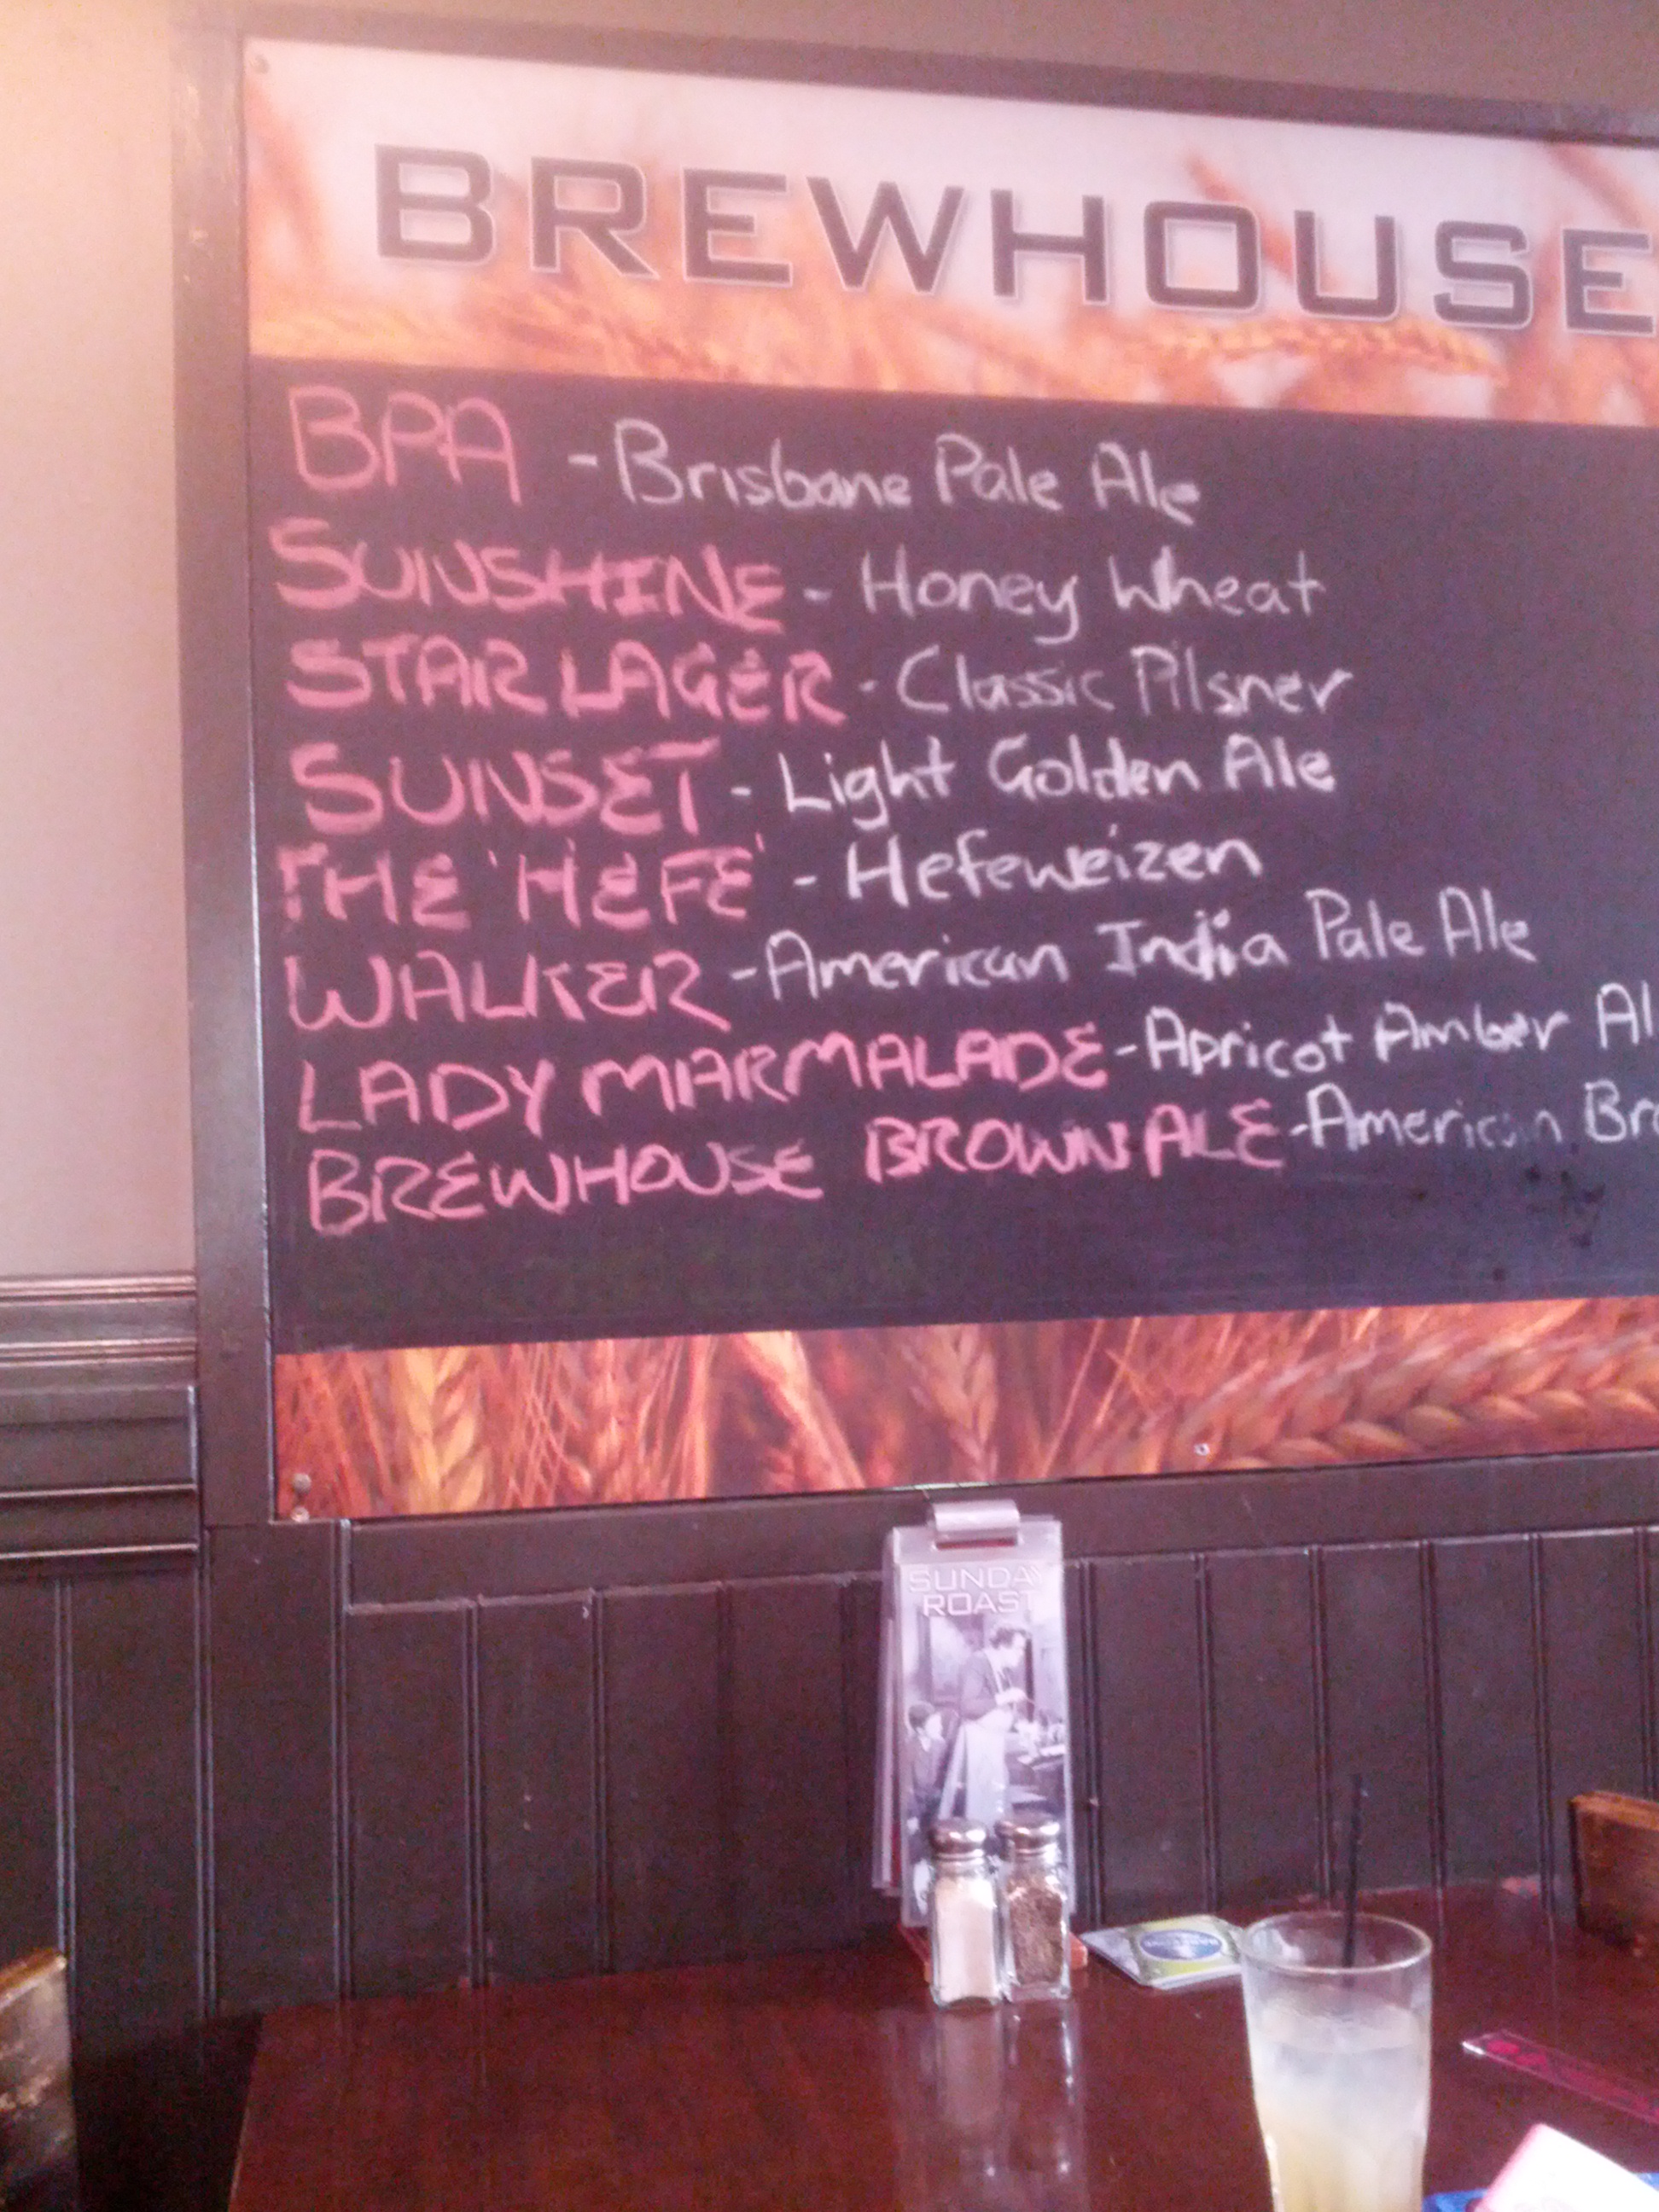 BREWHOUSE
BPA - Brisbane Pale Ale
SUNSHINE - Honey Wheat
STAR LAGER - Classic Pilsner
SUNSET - Light Golden Ale
THE 'HEFE' - Hefeweizen
WALKER - American India Pale Ale
LADY MARMALADE - Apricot Amber Al
BREWHOUSE BROWN ALE - American Bro
SUNDAY
ROAST